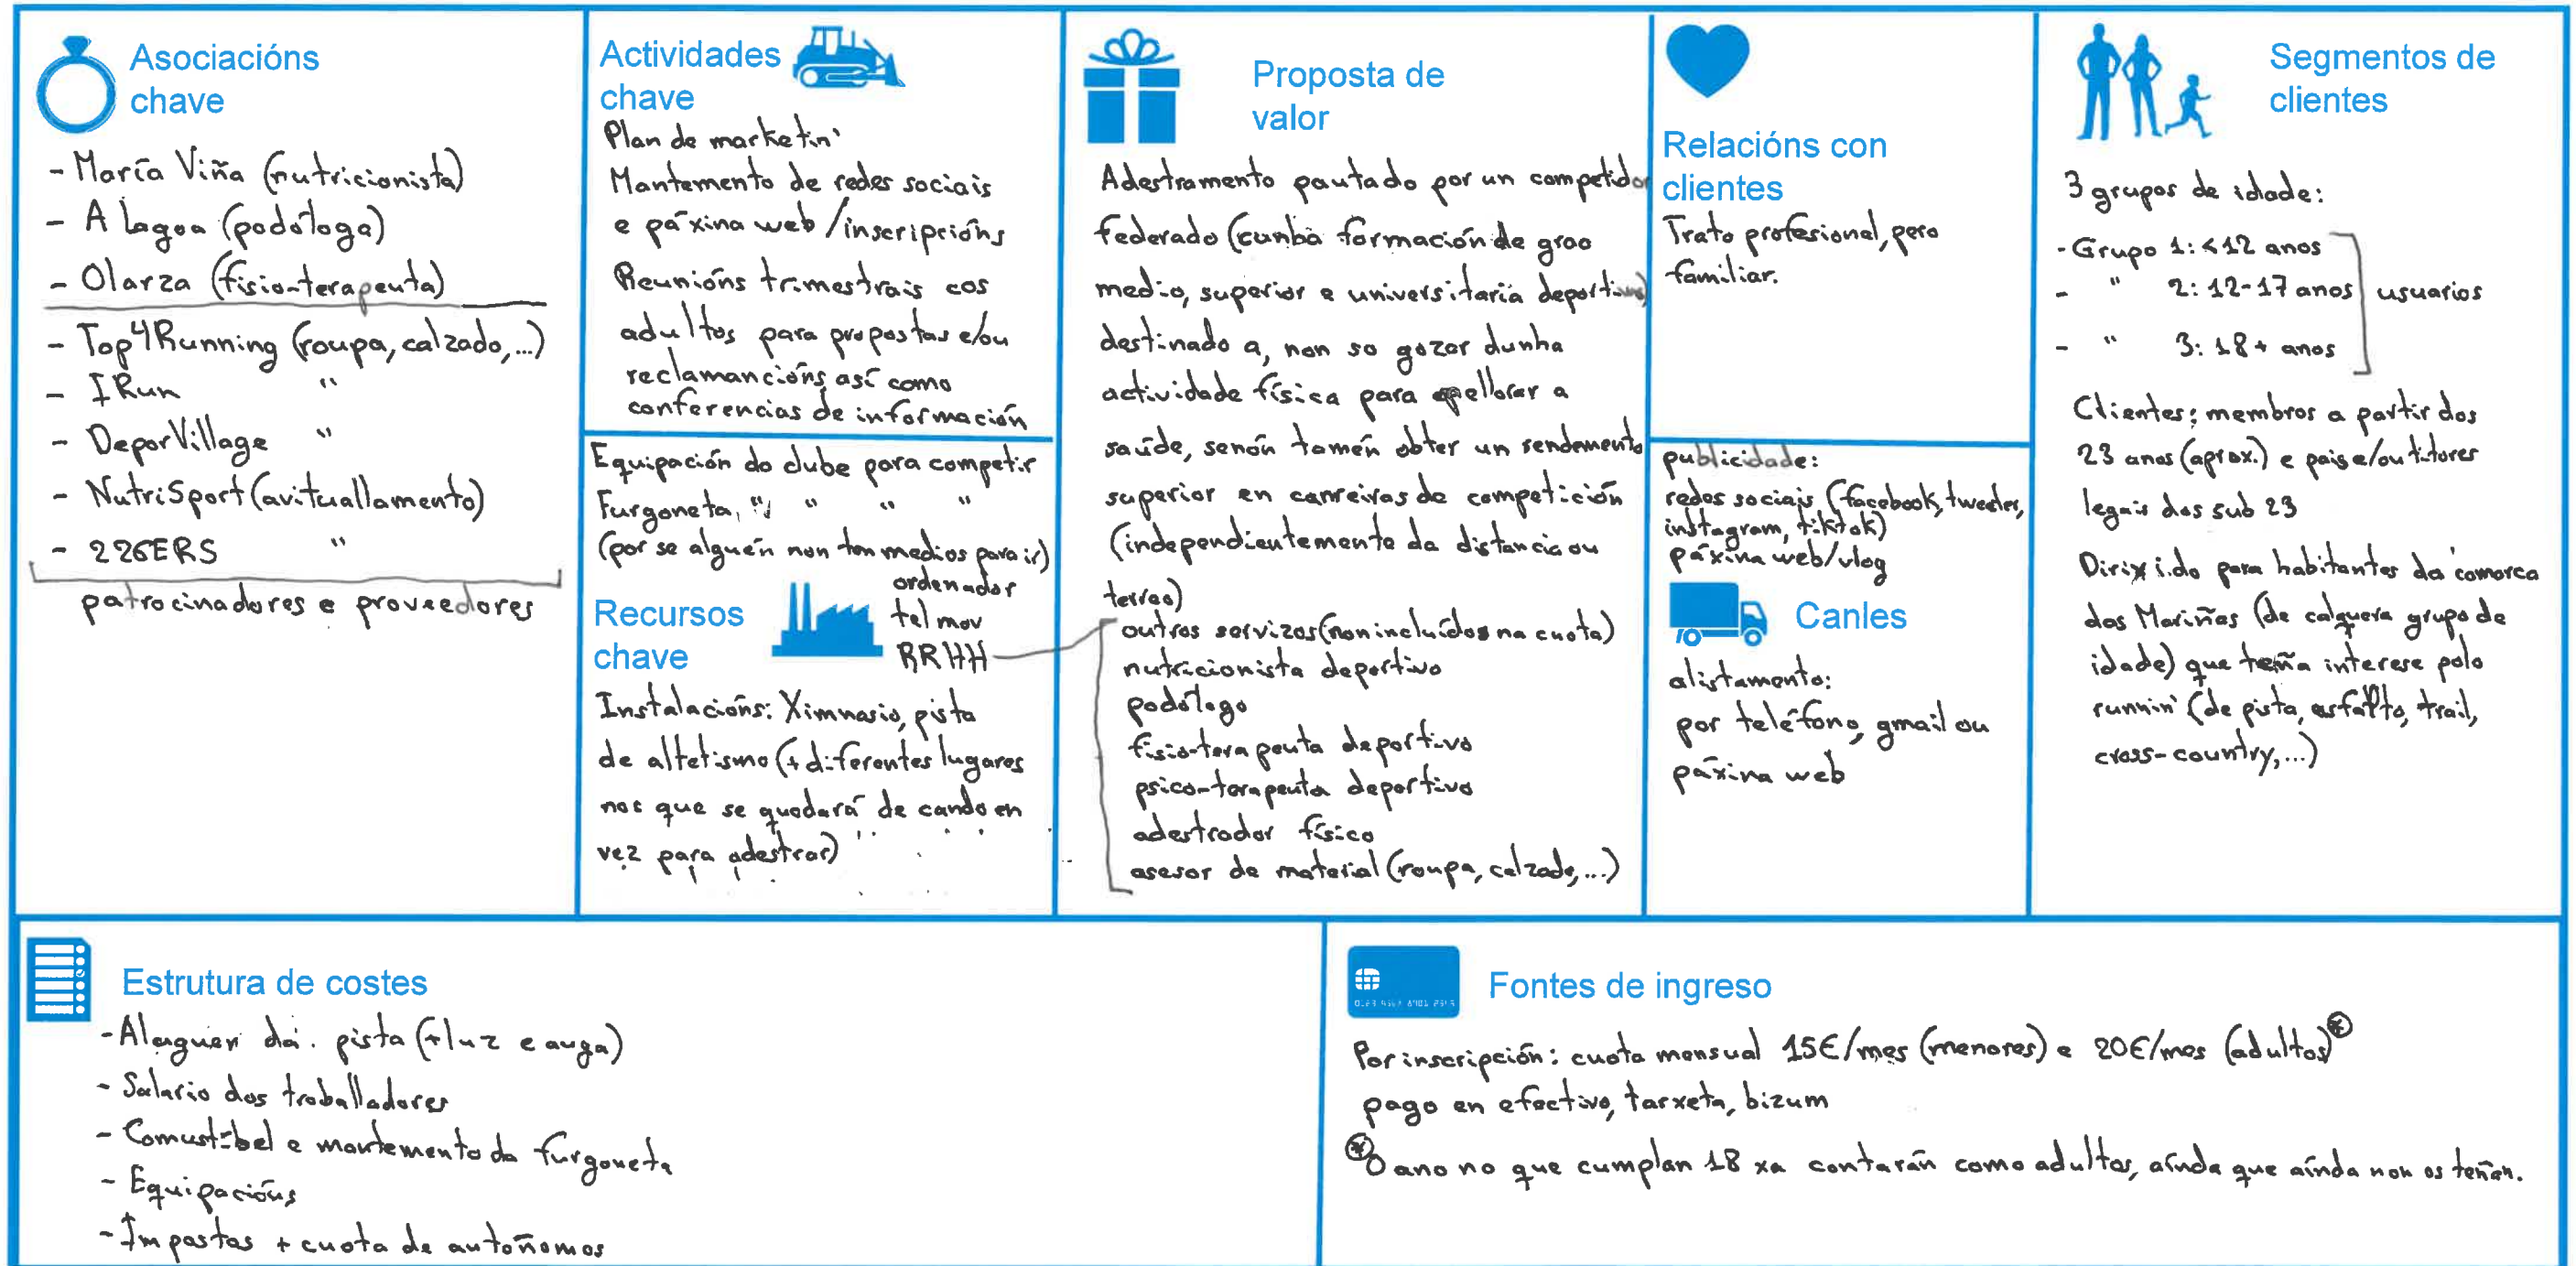 Asociacións
chave
- María Viña (nutricionista)
- A lagoa (podóloga)
- Olarza (fisio-terapeuta)
- Top4Running (roupa, calzado, ...)
- IRun "
- DeporVillage "
- NutriSport (avituallamento)
- 226ERS "
patrocinadores e proveedores
Actividades
chave
Plan de marketin'
Mantemento de redes sociais
e páxina web / inscripcións
Reunións trimestrais cos
adultos para propostas e/ou
reclamancións, así como
conferencias de información
Equipación do clube para competir
Furgoneta, " " " "
(por se alguén non ten medios para ir)
ordenador
tel mov
RRHH
Recursos
chave
Instalacións: Ximnasio, pista
de altetismo (+ diferentes lugares
nos que se quedará de cando en
vez para adestrar)
Proposta de
valor
Adestramento pautado por un competidor
federado (cunha formación de grao
medio, superior e universitaria deportiva)
destinado a, non so gozar dunha
actividade física para mellorar a
saúde, senón tamén obter un rendemento
superior en carreiras de competición
(independientemente da distancia ou
terreo)
outros servizos (non incluídos na cuota)
nutricionista deportivo
podólogo
fisio-terapeuta deportivo
psico-terapeuta deportivo
adestrador físico
asesor de material (roupa, calzado, ...)
Relacións con
clientes
Trato profesional, pero
familiar.
publicidade:
redes sociais (facebook, tweeter,
instagram, tiktok)
páxina web/vlog
Canles
alistamento:
por teléfono, gmail ou
páxina web
Segmentos de
clientes
3 grupos de idade:
- Grupo 1: <12 anos
- " 2: 12-17 anos usuarios
- " 3: 18+ anos
Clientes: membros a partir dos
23 anos (aprox.) e pais e/ou titores
legais dos sub 23
Dirixido para habitantes da comarca
das Mariñas (de calquera grupo de
idade) que teña interese polo
runnin' (de pista, asfalto, trail,
cross-country, ...)
Estrutura de costes
- Aluguer da pista (+ luz e auga)
- Salario dos traballadores
- Comustíbel e mantemento da furgoneta
- Equipacións
- Impostos + cuota de autónomos
Fontes de ingreso
Por inscripción: cuota mensual 15€/mes (menores) e 20€/mes (adultos)*
pago en efectivo, tarxeta, bizum
* O ano no que cumplan 18 xa contarán como adultos, aínda que aínda non os teñan.